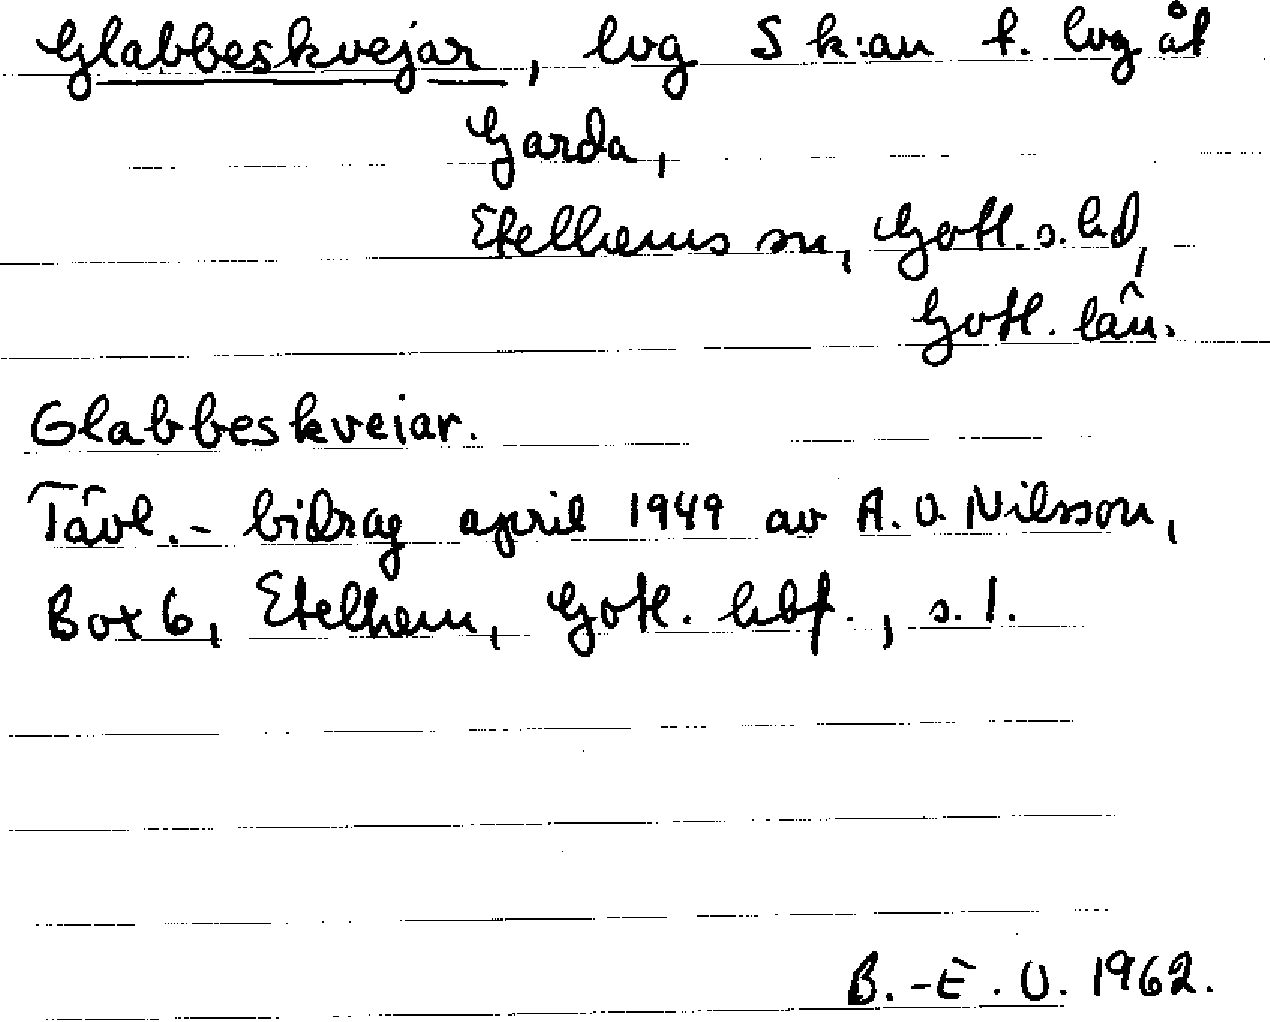 Glabbeskvejar, lvg S k:an t. lvg åt
Garda,
Etelhems sn, Gotl. s. hd,
Gotl. län.
Glabbeskveiar.
Tävl.- bidrag april 1949 av A. O. Nilsson,
Box 6, Etelhem, Gotl. hbf., s. 1.
B.-E. O. 1962.